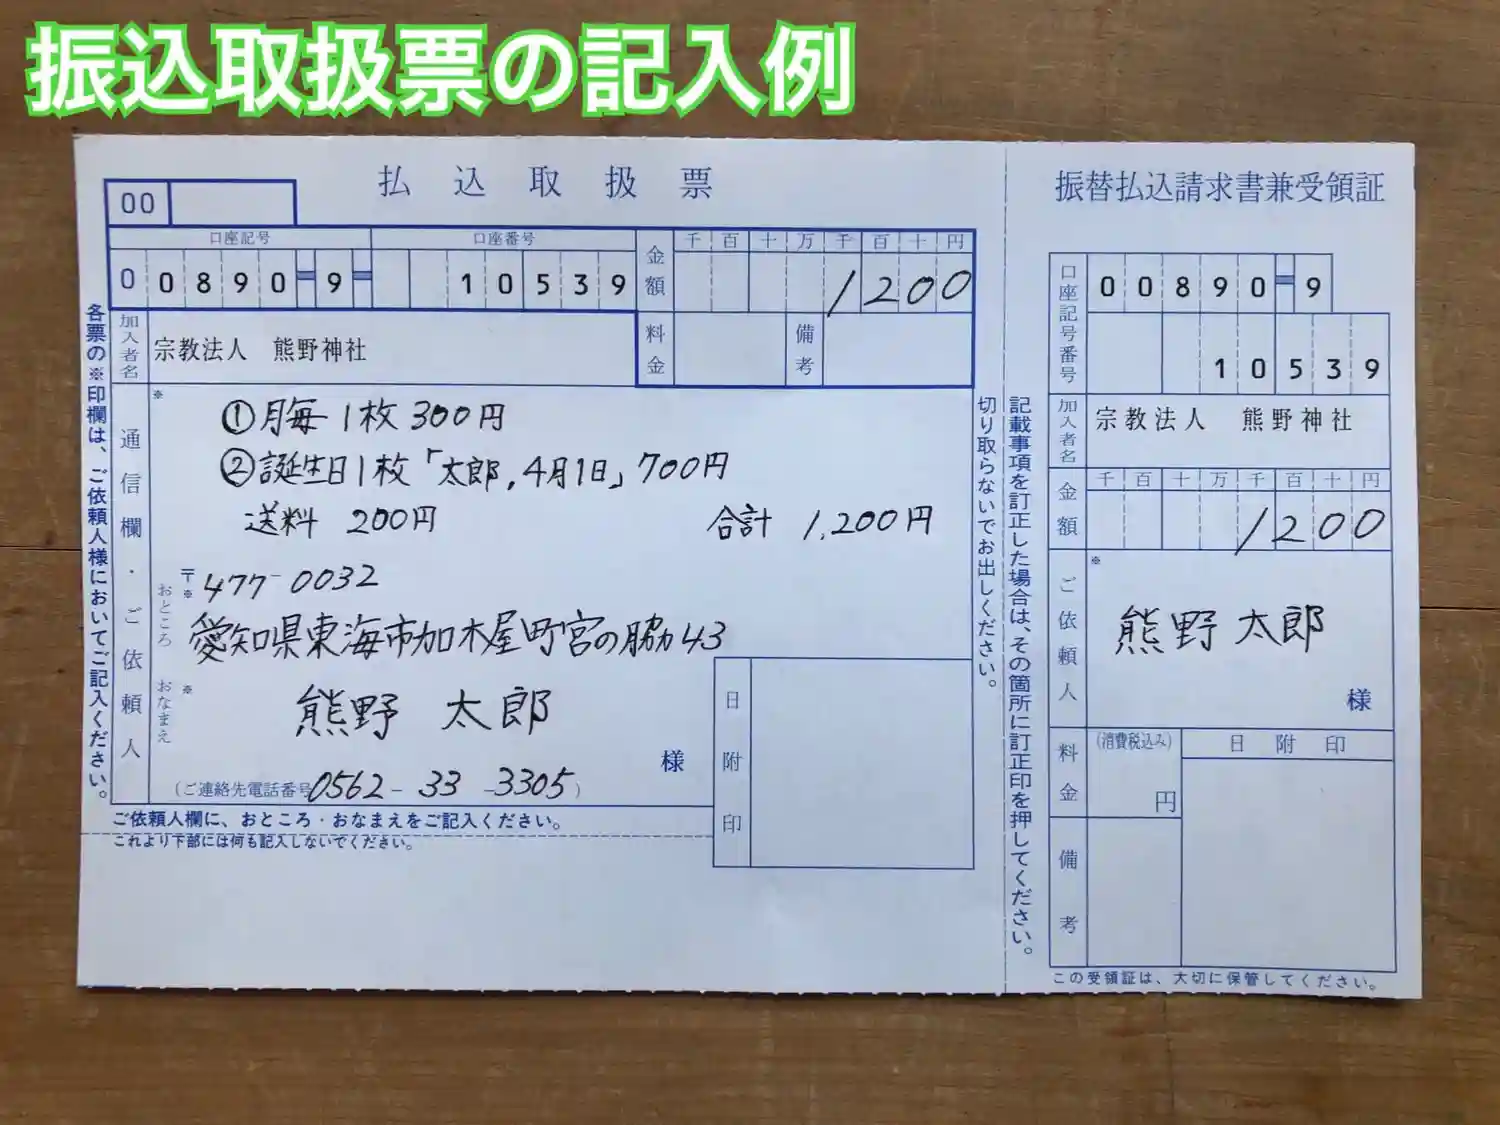 振込取扱票の記入例
払込取扱票
00
口座記号 口座番号
0 0890-9- 10539
金額
千百十万千百十円
1200
加入者名
宗教法人 熊野神社
料金
備考
各票の※印欄は、ご依頼人様においてご記入ください。
通信欄・ご依頼人
※
①月毎 1枚 300円
②誕生日1枚「太郎,4月1日」700円
送料 200円 合計 1,200円
〒 477-0032
※
おところ
愛知県東海市加木屋町宮の脇43
おなまえ
※
熊野 太郎
様
(ご連絡先電話番号 0562-33-3305)
日附印
ご依頼人欄に、おところ・おなまえをご記入ください。
これより下部には何も記入しないでください。
切り取らないでお出しください。
記載事項を訂正した場合は、その箇所に訂正印を押してください。
振替払込請求書兼受領証
口座記号番号
00890-9
10539
加入者名
宗教法人 熊野神社
金額
千百十万千百十円
1200
ご依頼人
※
熊野太郎
様
料金
(消費税込み)
円
日附印
備考
この受領証は、大切に保管してください。